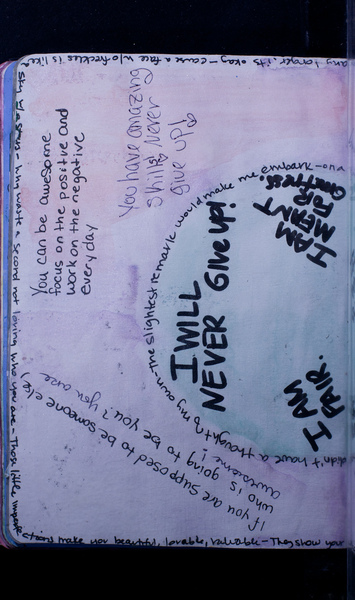 You can be awesome
focus on the positive and
work on the negative
everyday
You have amazing
skills! Never
give up!
I WILL
NEVER GIVE UP!
I AM
MEANT
FOR
GREATNESS.
I AM
FAIR.
if you are supposed to be someone else,
who is going to be you? you are
awesome!
didn't have a thought to my own-the slightest remark would make me embark-on
any longer, its okay-cause a face w/o freckles is like
sky
why waste a second not loving who you are-Those little
make you beautiful, lovable, valuable-They show your